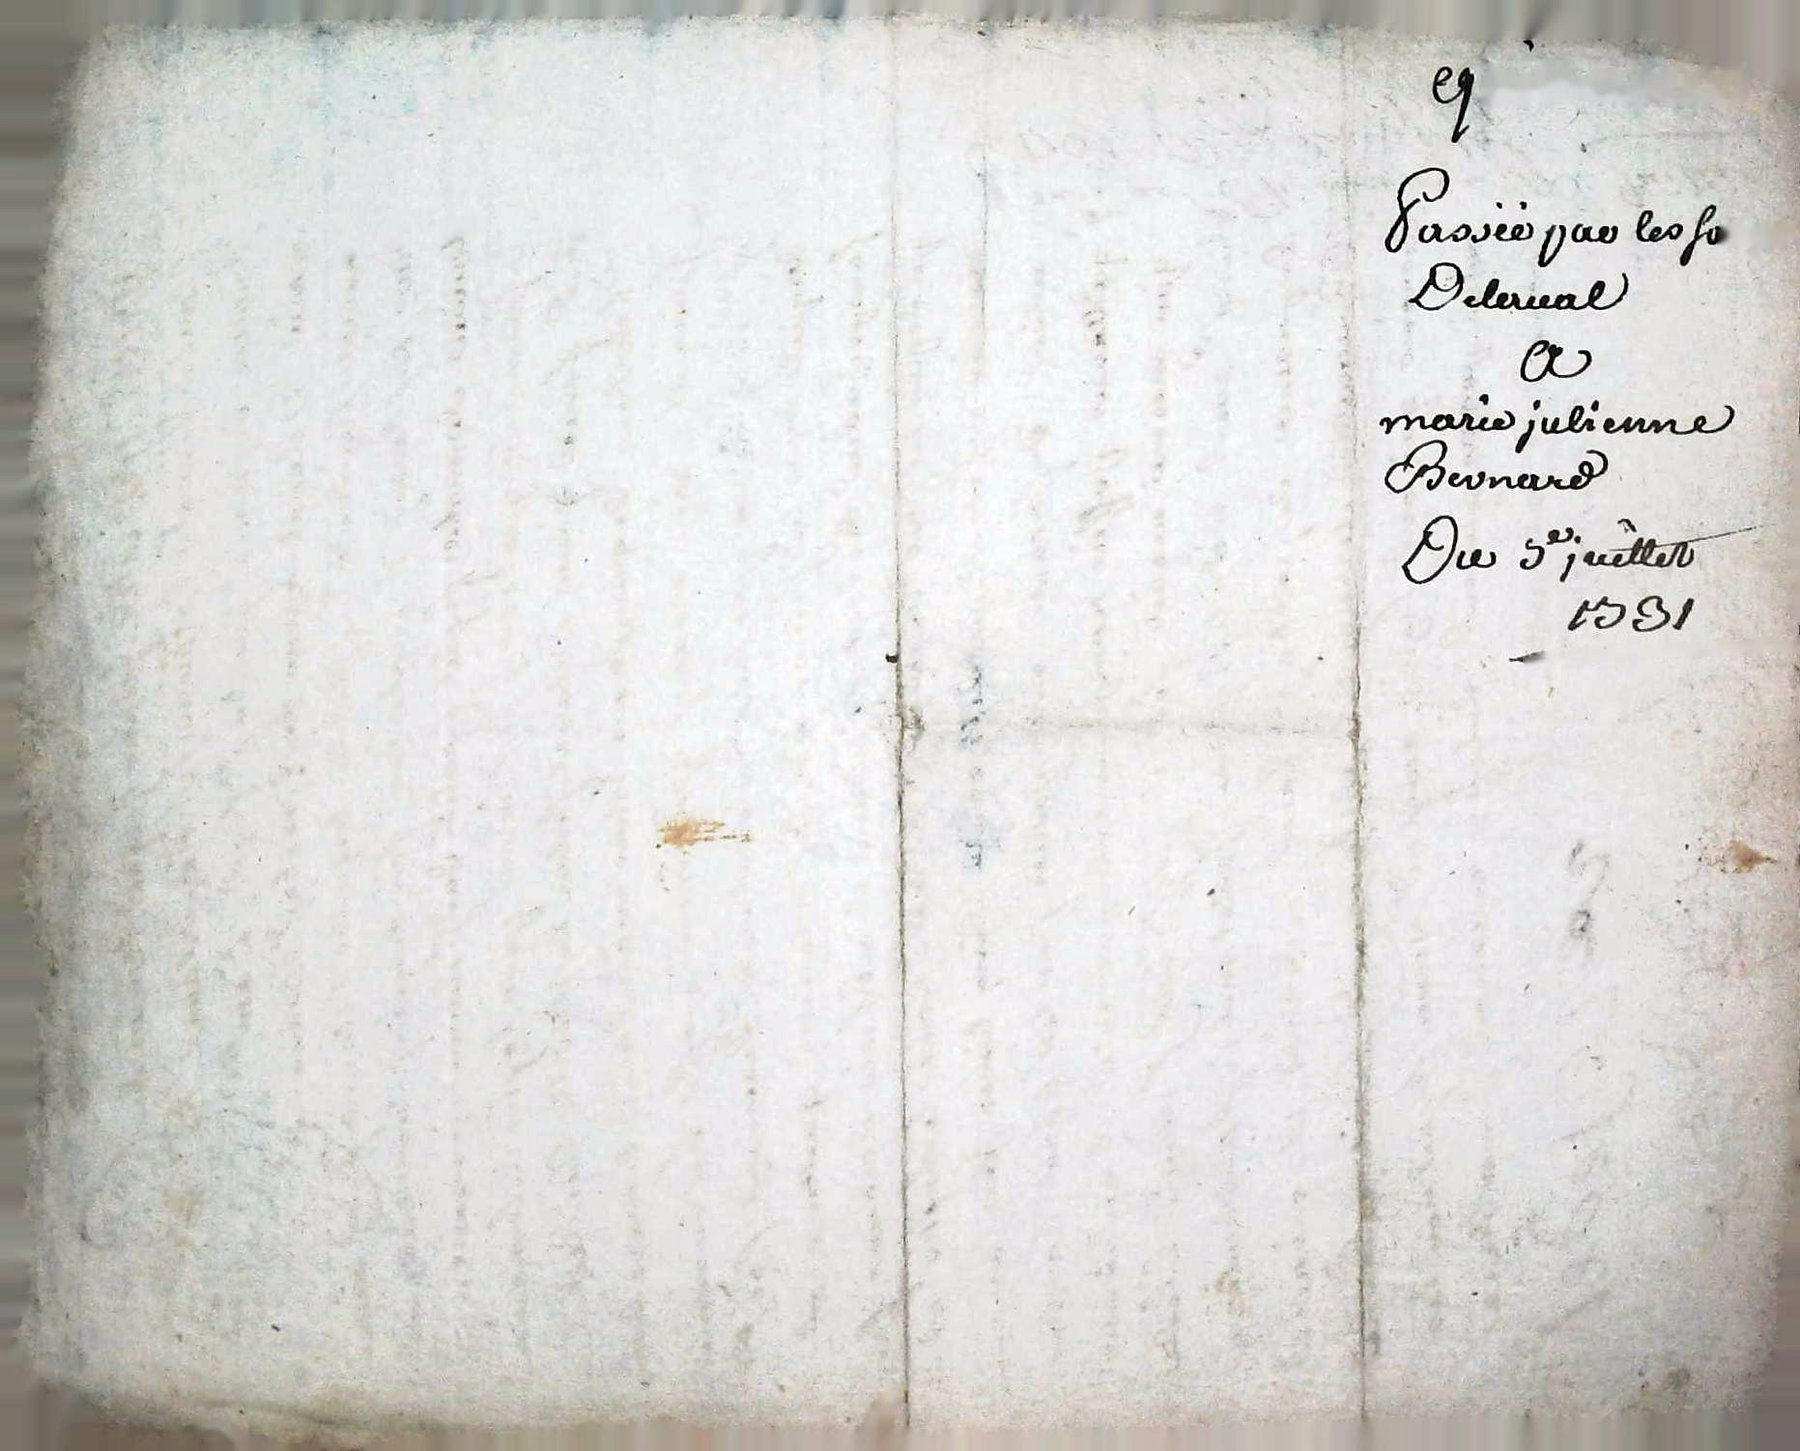 Passée par les s
Delerual
A
marie julienne
Bernard
Du 5e juillet
1731